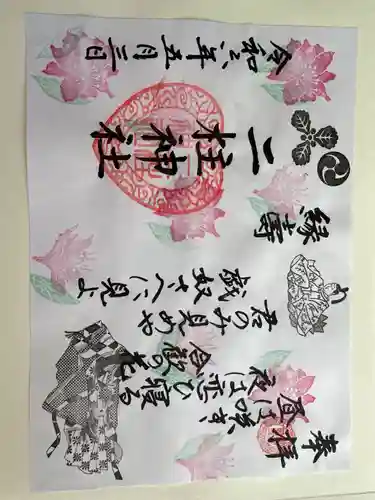 奉拝
昼は咲き、
夜は恋ひ寝る
合歓の花
君のみ見めや
戯奴さへに見よ
二柱神社
令和六年五月三日